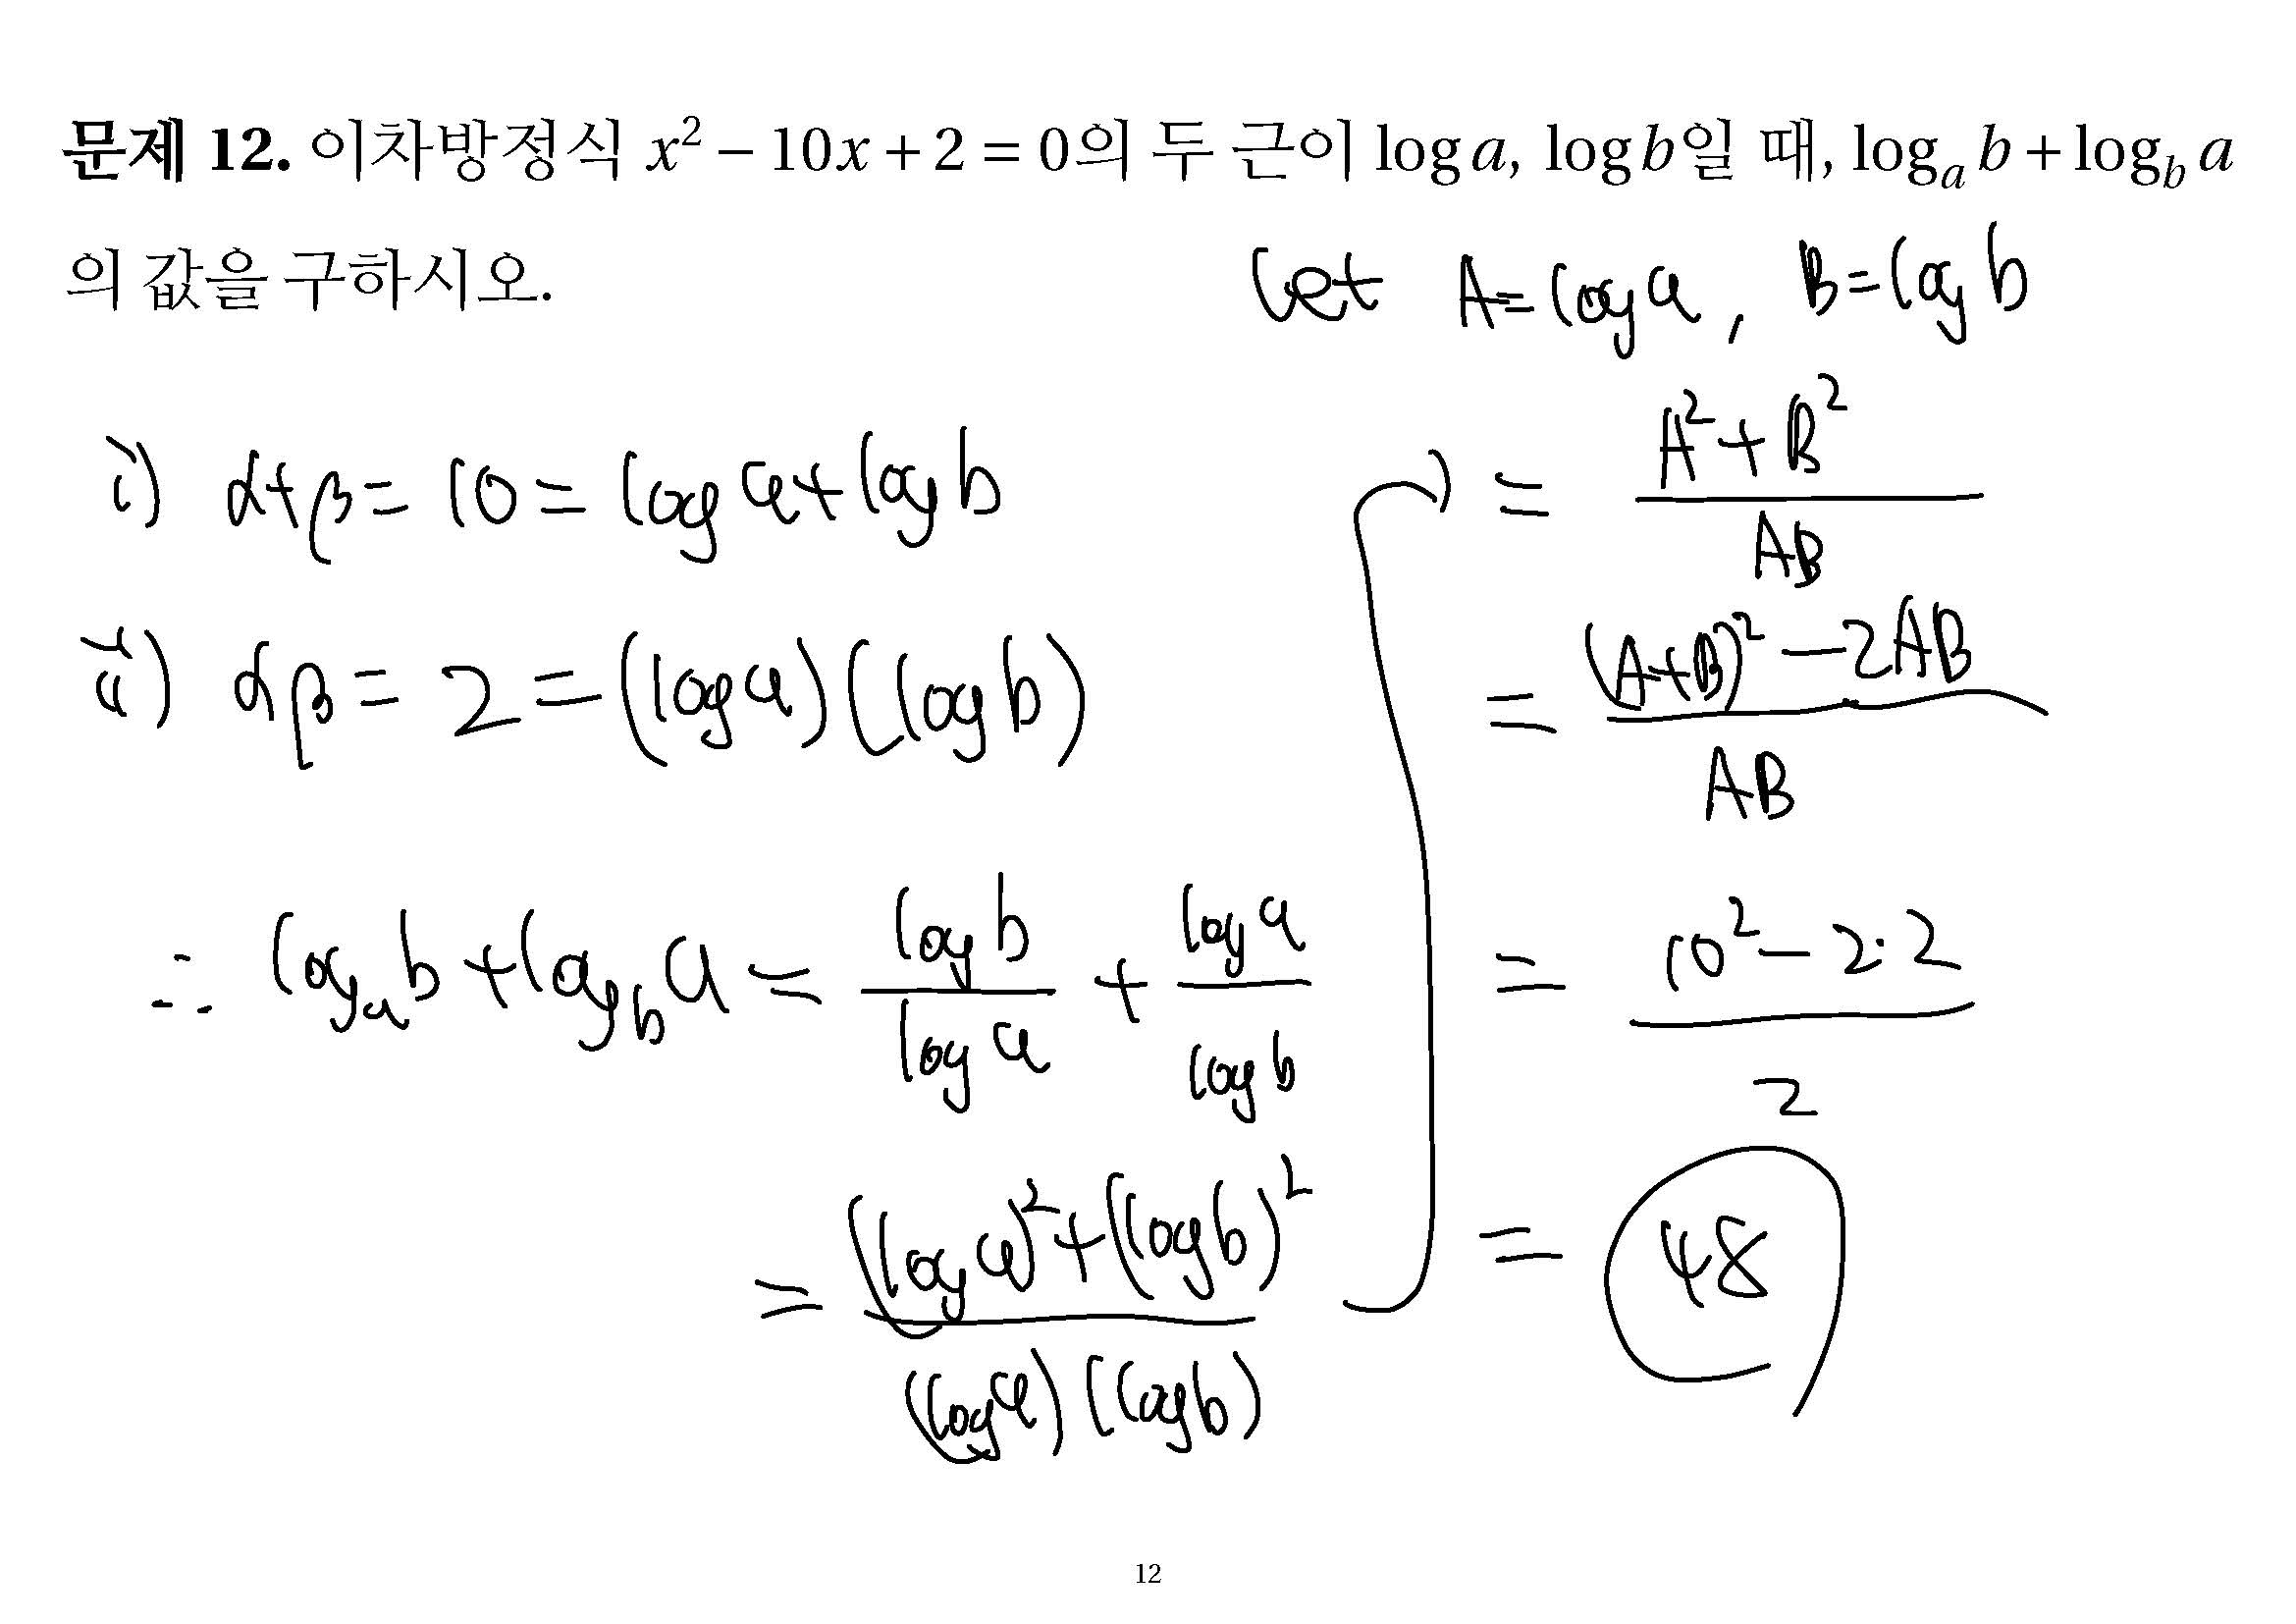 문제 12. 이차방정식 x² − 10x + 2 = 0의 두 근이 log a, log b일 때, logₐ b + log_b a
의 값을 구하시오.
let A = log a, B = log b
i) α+β = 10 = log a + log b
ii) αβ = 2 = (log a)(log b)
∴ logₐ b + log_b a = (log b)/(log a) + (log a)/(log b)
= ((log a)² + (log b)²)/((log a)(log b))
= (A² + B²)/(AB)
= ((A+B)² − 2AB)/(AB)
= (10² − 2·2)/2
= 48
12